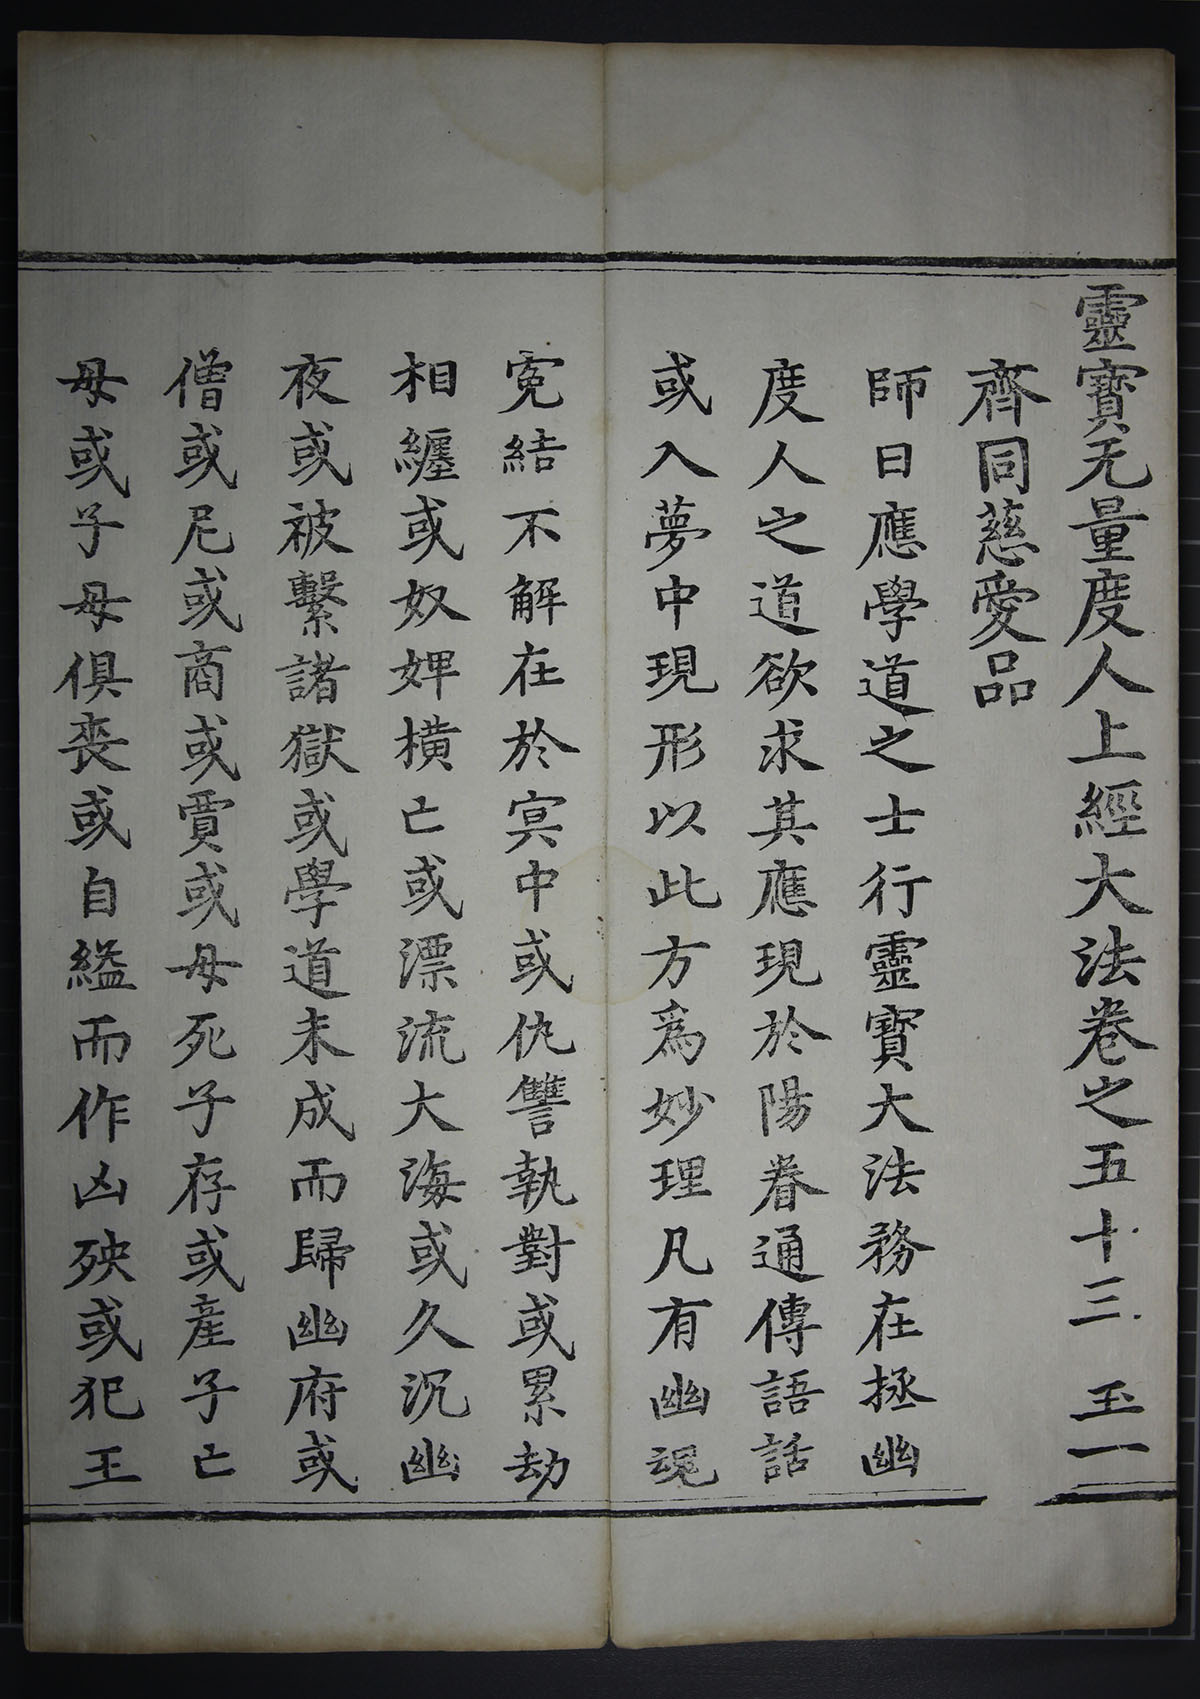 靈寶无量度人上經大法卷之五十三 玉一
齊同慈愛品
師曰應學道之士行靈寶大法務在拯幽
度人之道欲求其應現於陽眷通傳語話
或入夢中現形以此方爲妙理凡有幽魂
寃結不解在於冥中或仇讐執對或累劫
相纏或奴婢橫亡或漂流大海或久沉幽
夜或被繫諸獄或學道未成而歸幽府或
僧或尼或商或賈或母死子存或產子亡
母或子母俱喪或自縊而作凶殃或犯王